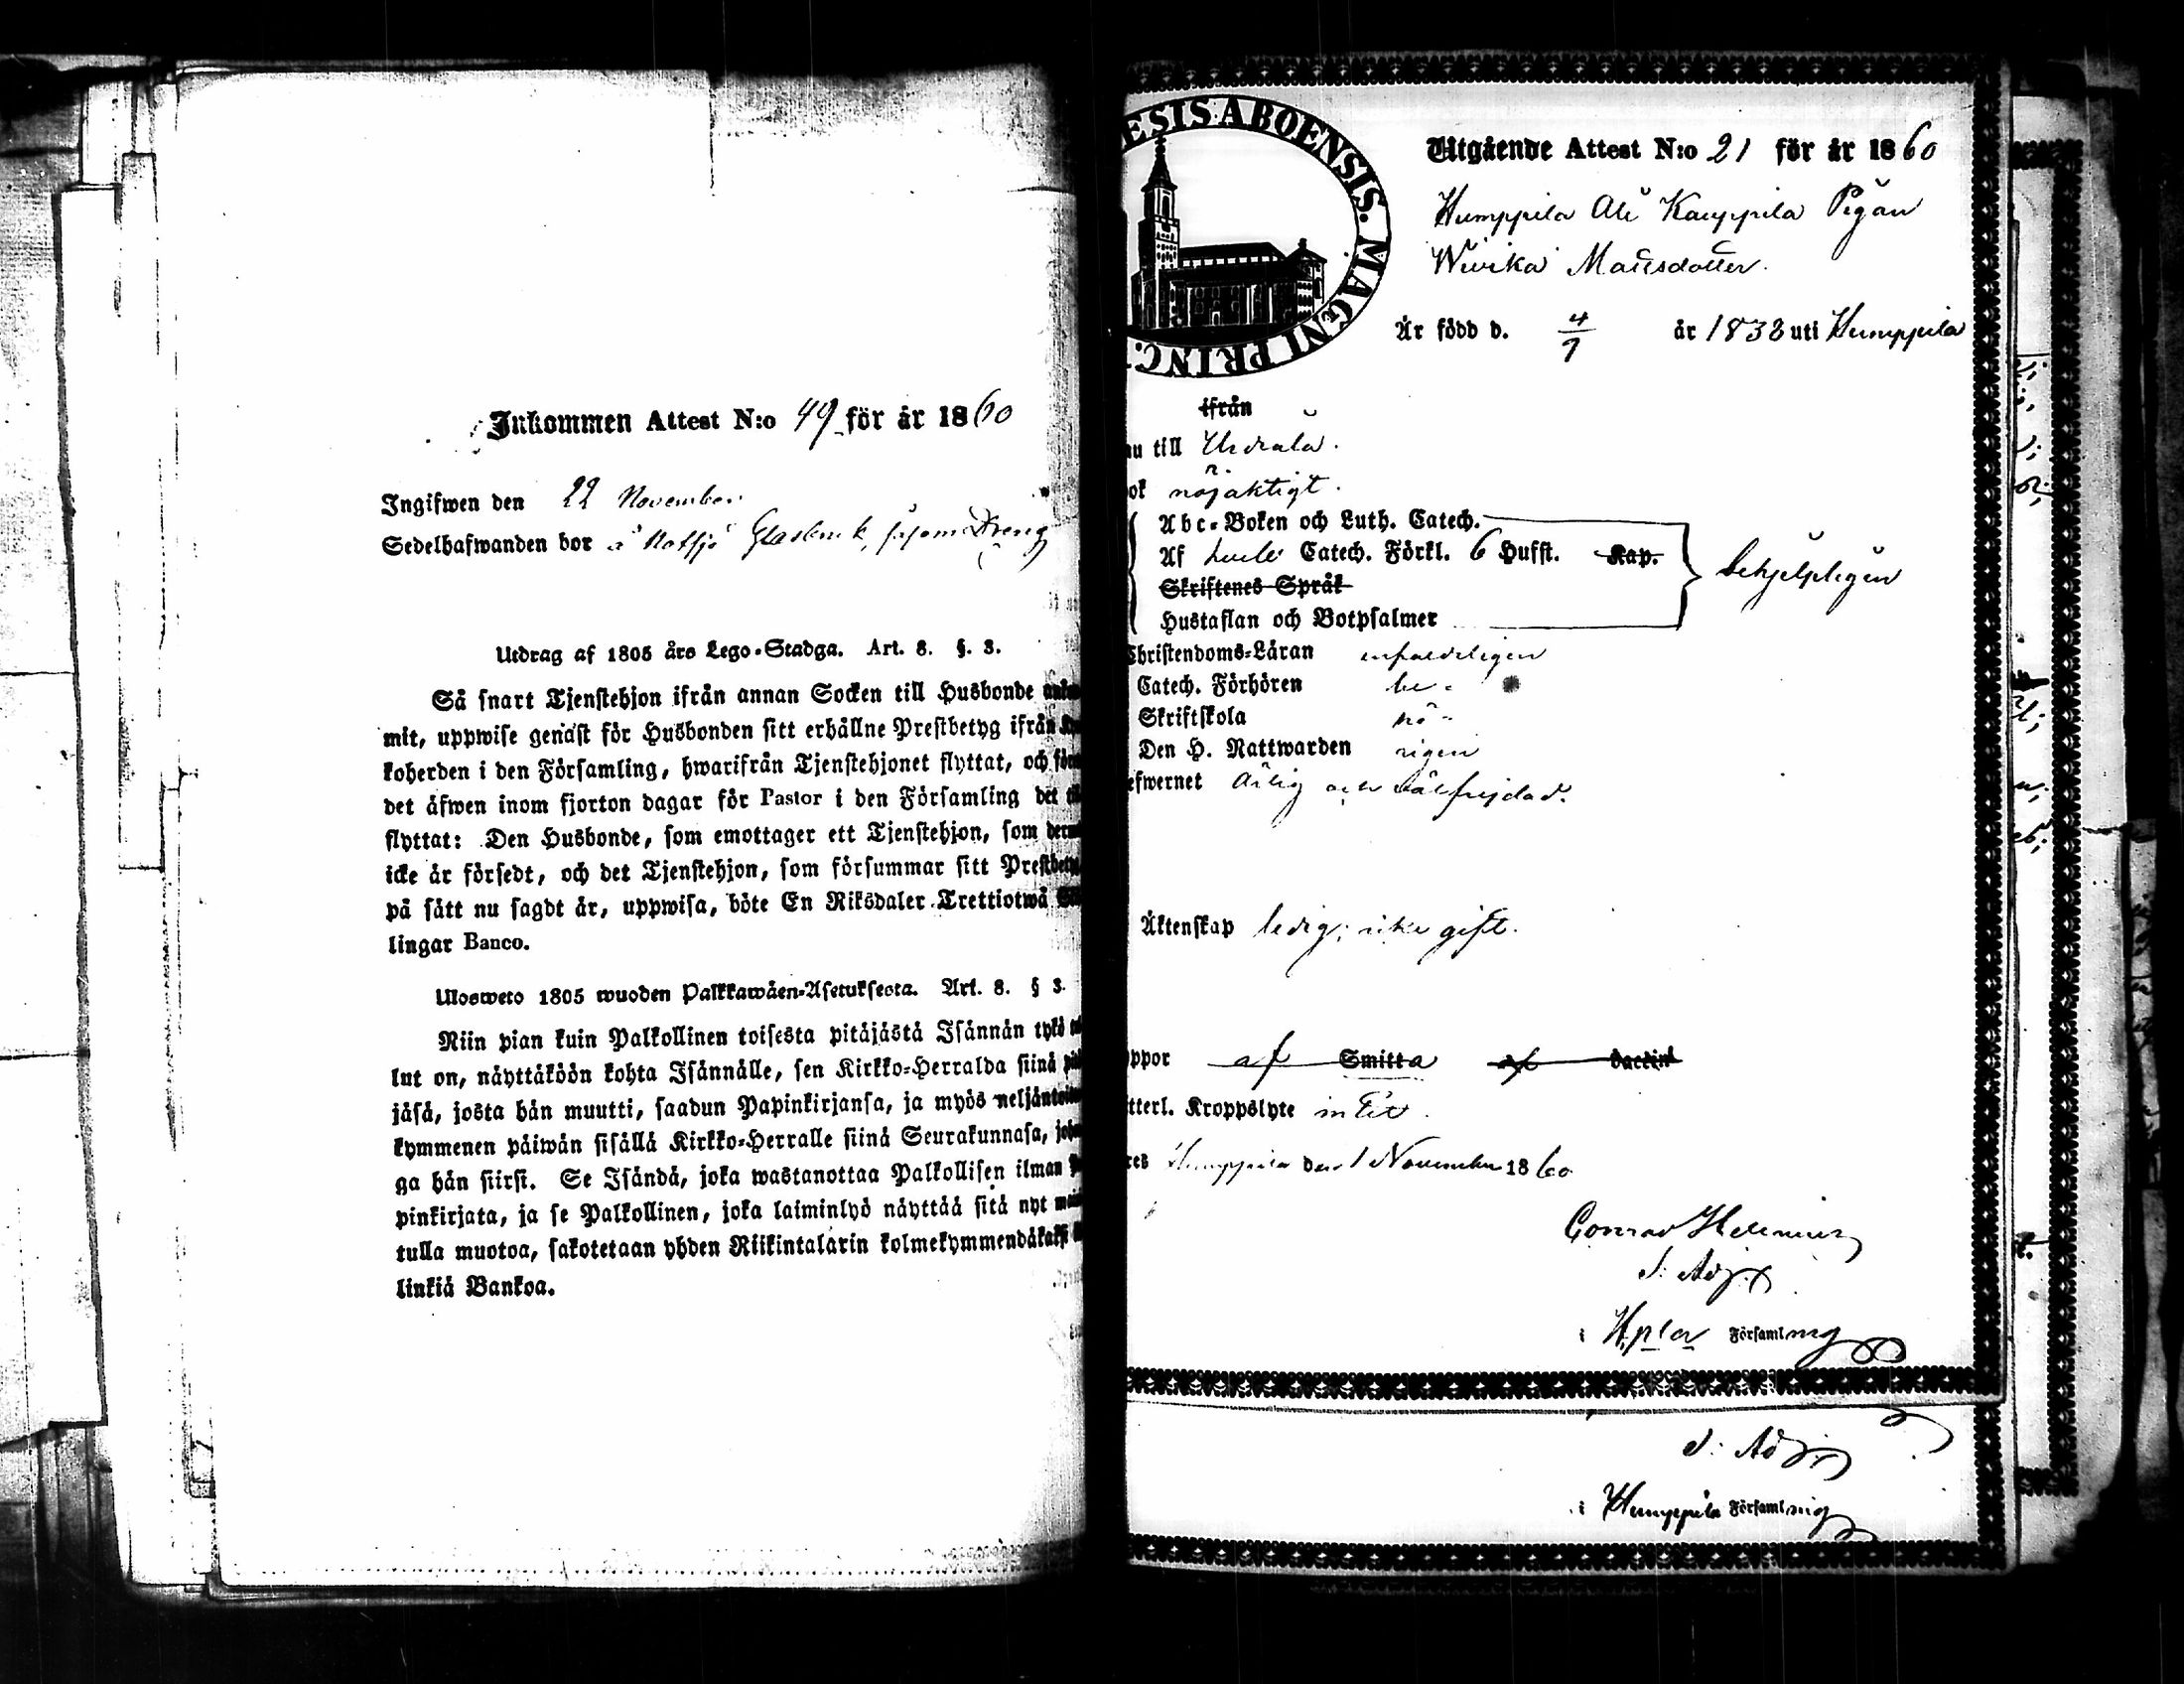 Inkommen Attest N:o 49 för år 1860
Ingifwen den 22 November
Sedelhafwanden bor å Notsjö Glasbruk, såsom Dreng
Utdrag af 1805 års Lego-Stadga. Art. 8. §. 3.
Så snart Tjenstehjon ifrån annan Socken till Husbonde
mit, uppwise genast för Husbonden sitt erhållne Prestbetyg ifrån
koherden i den Församling, hwarifrån Tjenstehjonet flyttat, och
det äfwen inom fjorton dagar för Pastor i den Församling det
flyttat: Den Husbonde, som emottager ett Tjenstehjon, som
icke är försedt, och det Tjenstehjon, som försummar sitt
på sätt nu sagdt är, uppwisa, böte En Riksdaler Trettiotwå
lingar Banco.
Ulosweto 1805 wuoden Palkkawäen-Asetuksesta. Art. 8. § 3.
Niin pian kuin Palkollinen toisesta pitäjästä Isännän tykö
lut on, näyttäköön kohta Isännälle, sen Kirkko-Herralda siinä
jäsä, josta hän muutti, saadun Papinkirjansa, ja myös
kymmenen päiwän sisällä Kirkko-Herralle siinä Seurakunnasa,
ga hän siirsi. Se Isändä, joka wastanottaa Palkollisen ilman
pinkirjata, ja se Palkollinen, joka laiminlyö näyttää sitä nyt
tulla muotoa, sakotetaan yhden Riikintalarin
linkiä Bankoa.
ESIS ABOENSIS. MAGNI PRINC.
Utgående Attest N:o 21 för år 1860
Humppila Ali Kauppila Pigan
Wivika Mattsdotter.
Är född d. 4/7 år 1838 uti Humppila
ifrån
nu till Urdiala.
ok nöjaktigt.
Abc-Boken och Luth. Catech.
Af hela Catech. Förkl. 6 Hufst. Kap.
Skriftenes Språk
Hustaflan och Botpsalmer
behjelpligen
Christendoms-Läran enfaldeligen
Catech. Förhören be-
Skriftskola hö-
Den H. Nattwarden rigen
efwernet ärlig och wälfrejdad.
Äktenskap ledig; icke gift.
ppor af Smitta af Vaccin
tterl. Kroppslyte intet.
res Humppila den 1 November 1860
Conrad
v: Adj.
i Hpla Församlning
v: Adj.
i Humppila Församlning